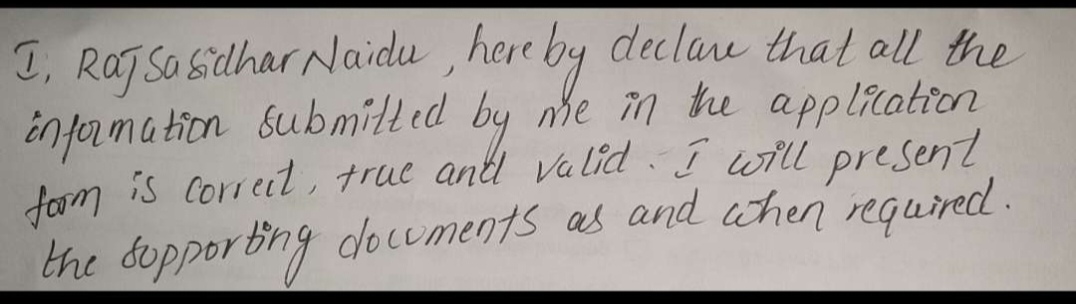 I, Raj Sasidhar Naidu, hereby declare that all the
information submitted by me in the application
form is correct, true and valid. I will present
the supporting documents as and when required.